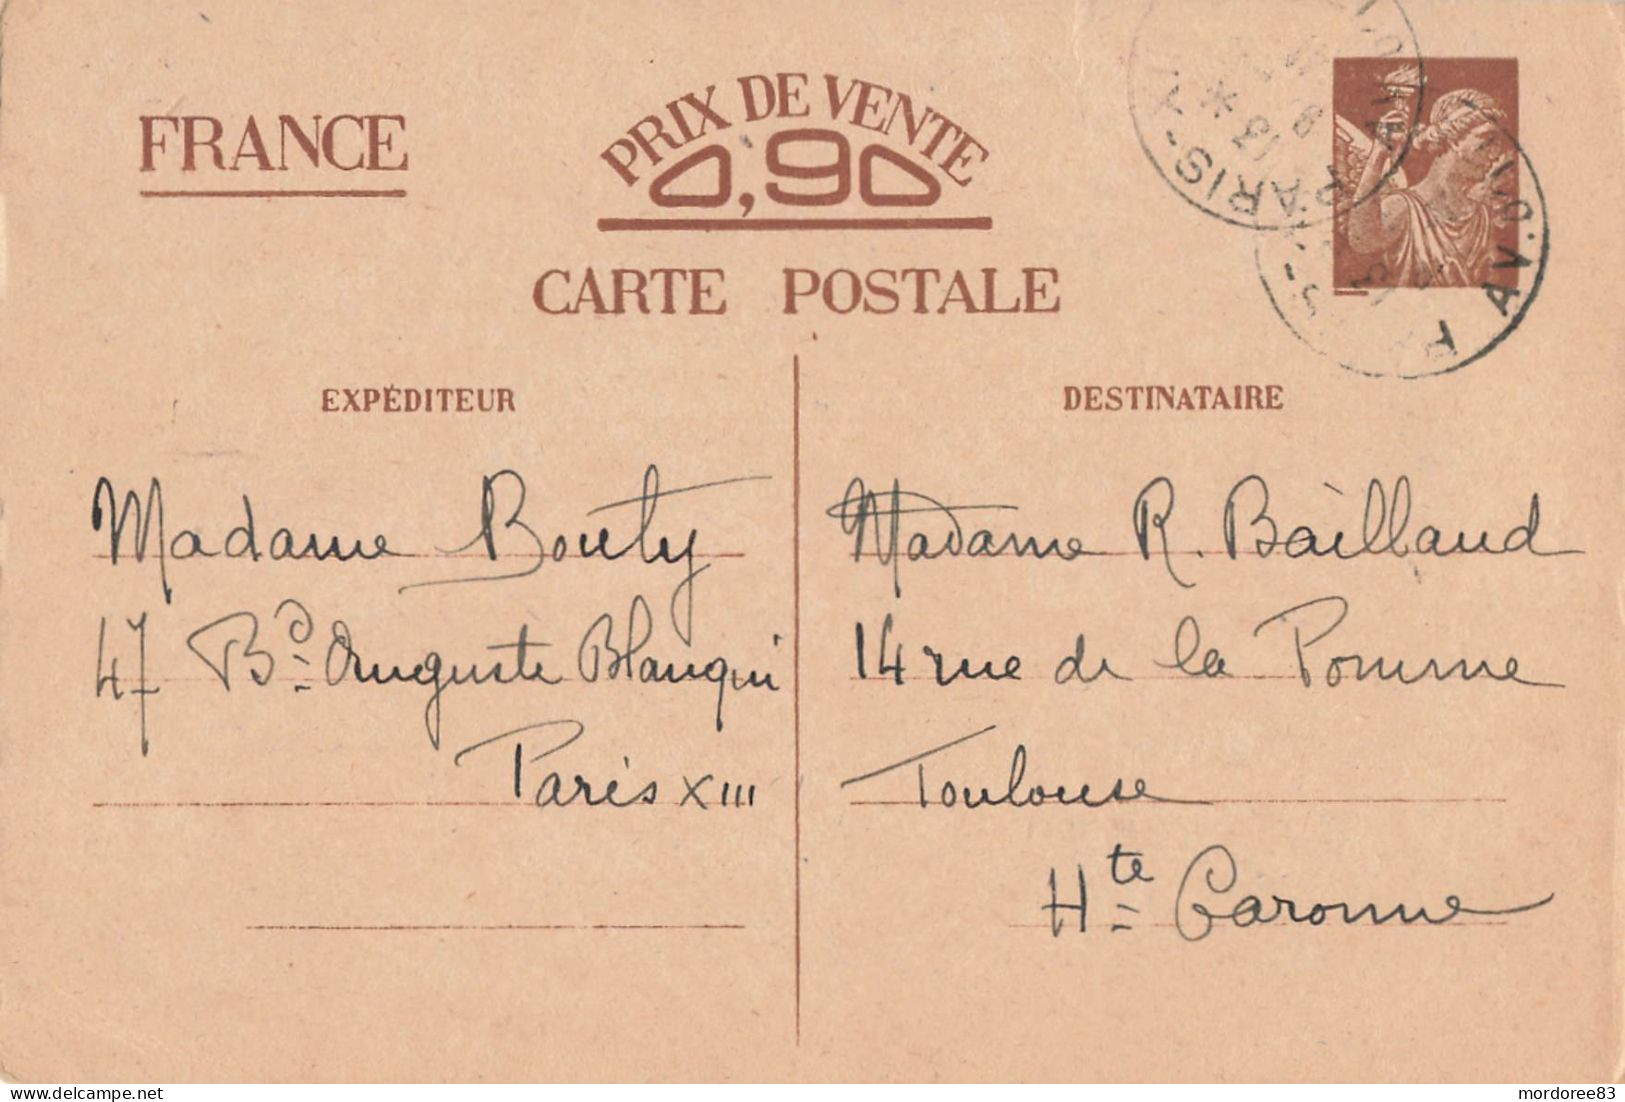 FRANCE
PRIX DE VENTE
0,90
CARTE POSTALE
EXPÉDITEUR
Madame Bouty
47 Bd Auguste Blanqui
Paris XIII
DESTINATAIRE
Madame R. Baillaud
14 rue de la Pomme
Toulouse
Hte Garonne
PARIS
AV.
mordoree83